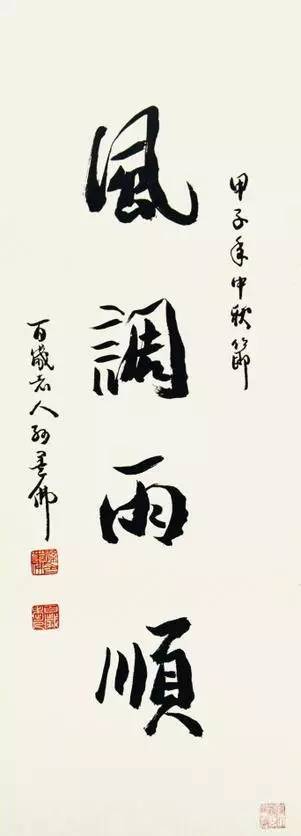 甲子年中秋節
風調雨順
百歲老人孫墨佛